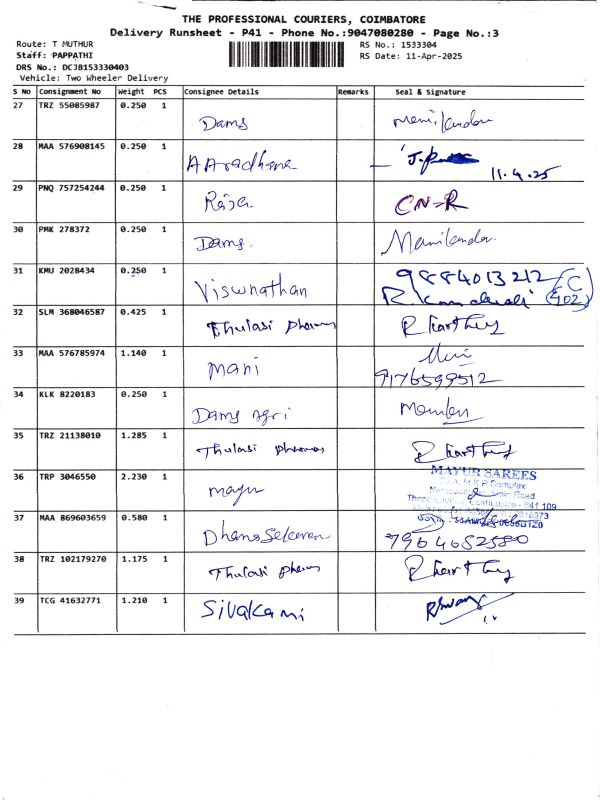 THE PROFESSIONAL COURIERS, COIMBATORE
Delivery Runsheet - P41 - Phone No.:9047080280 - Page No.:3
Route: T MUTHUR
Staff: PAPPATHI
DRS No.: DCJB153330403
Vehicle: Two Wheeler Delivery
RS No.: 1533304
RS Date: 11-Apr-2025
S No Consignment No Weight PCS Consignee Details Remarks Seal & Signature
27 TRZ 55085987 0.250 1 Dams Manikandan
28 MAA 576908145 0.250 1 AAradhana 11.4.25
29 PNQ 757254244 0.250 1 Raja CN-R
30 PMK 278372 0.250 1 Dams. Manikandan
31 KMU 2028434 0.250 1 Viswnathan 9884013212
32 SLM 368046587 0.425 1 Thulasi pharmy R karthy
33 MAA 576785974 1.140 1 mani Mani
9176599512
34 KLK 8220183 0.250 1 Dams agri
35 TRZ 21138010 1.285 1 Thulasi R karthy
36 TRP 3046550 2.230 1 mayur MAYUR SAREES
37 MAA 869603659 0.580 1 Dhanasekaran 7904652580
38 TRZ 102179270 1.175 1 Thulasi R karthy
39 TCG 41632771 1.210 1 Sivakami